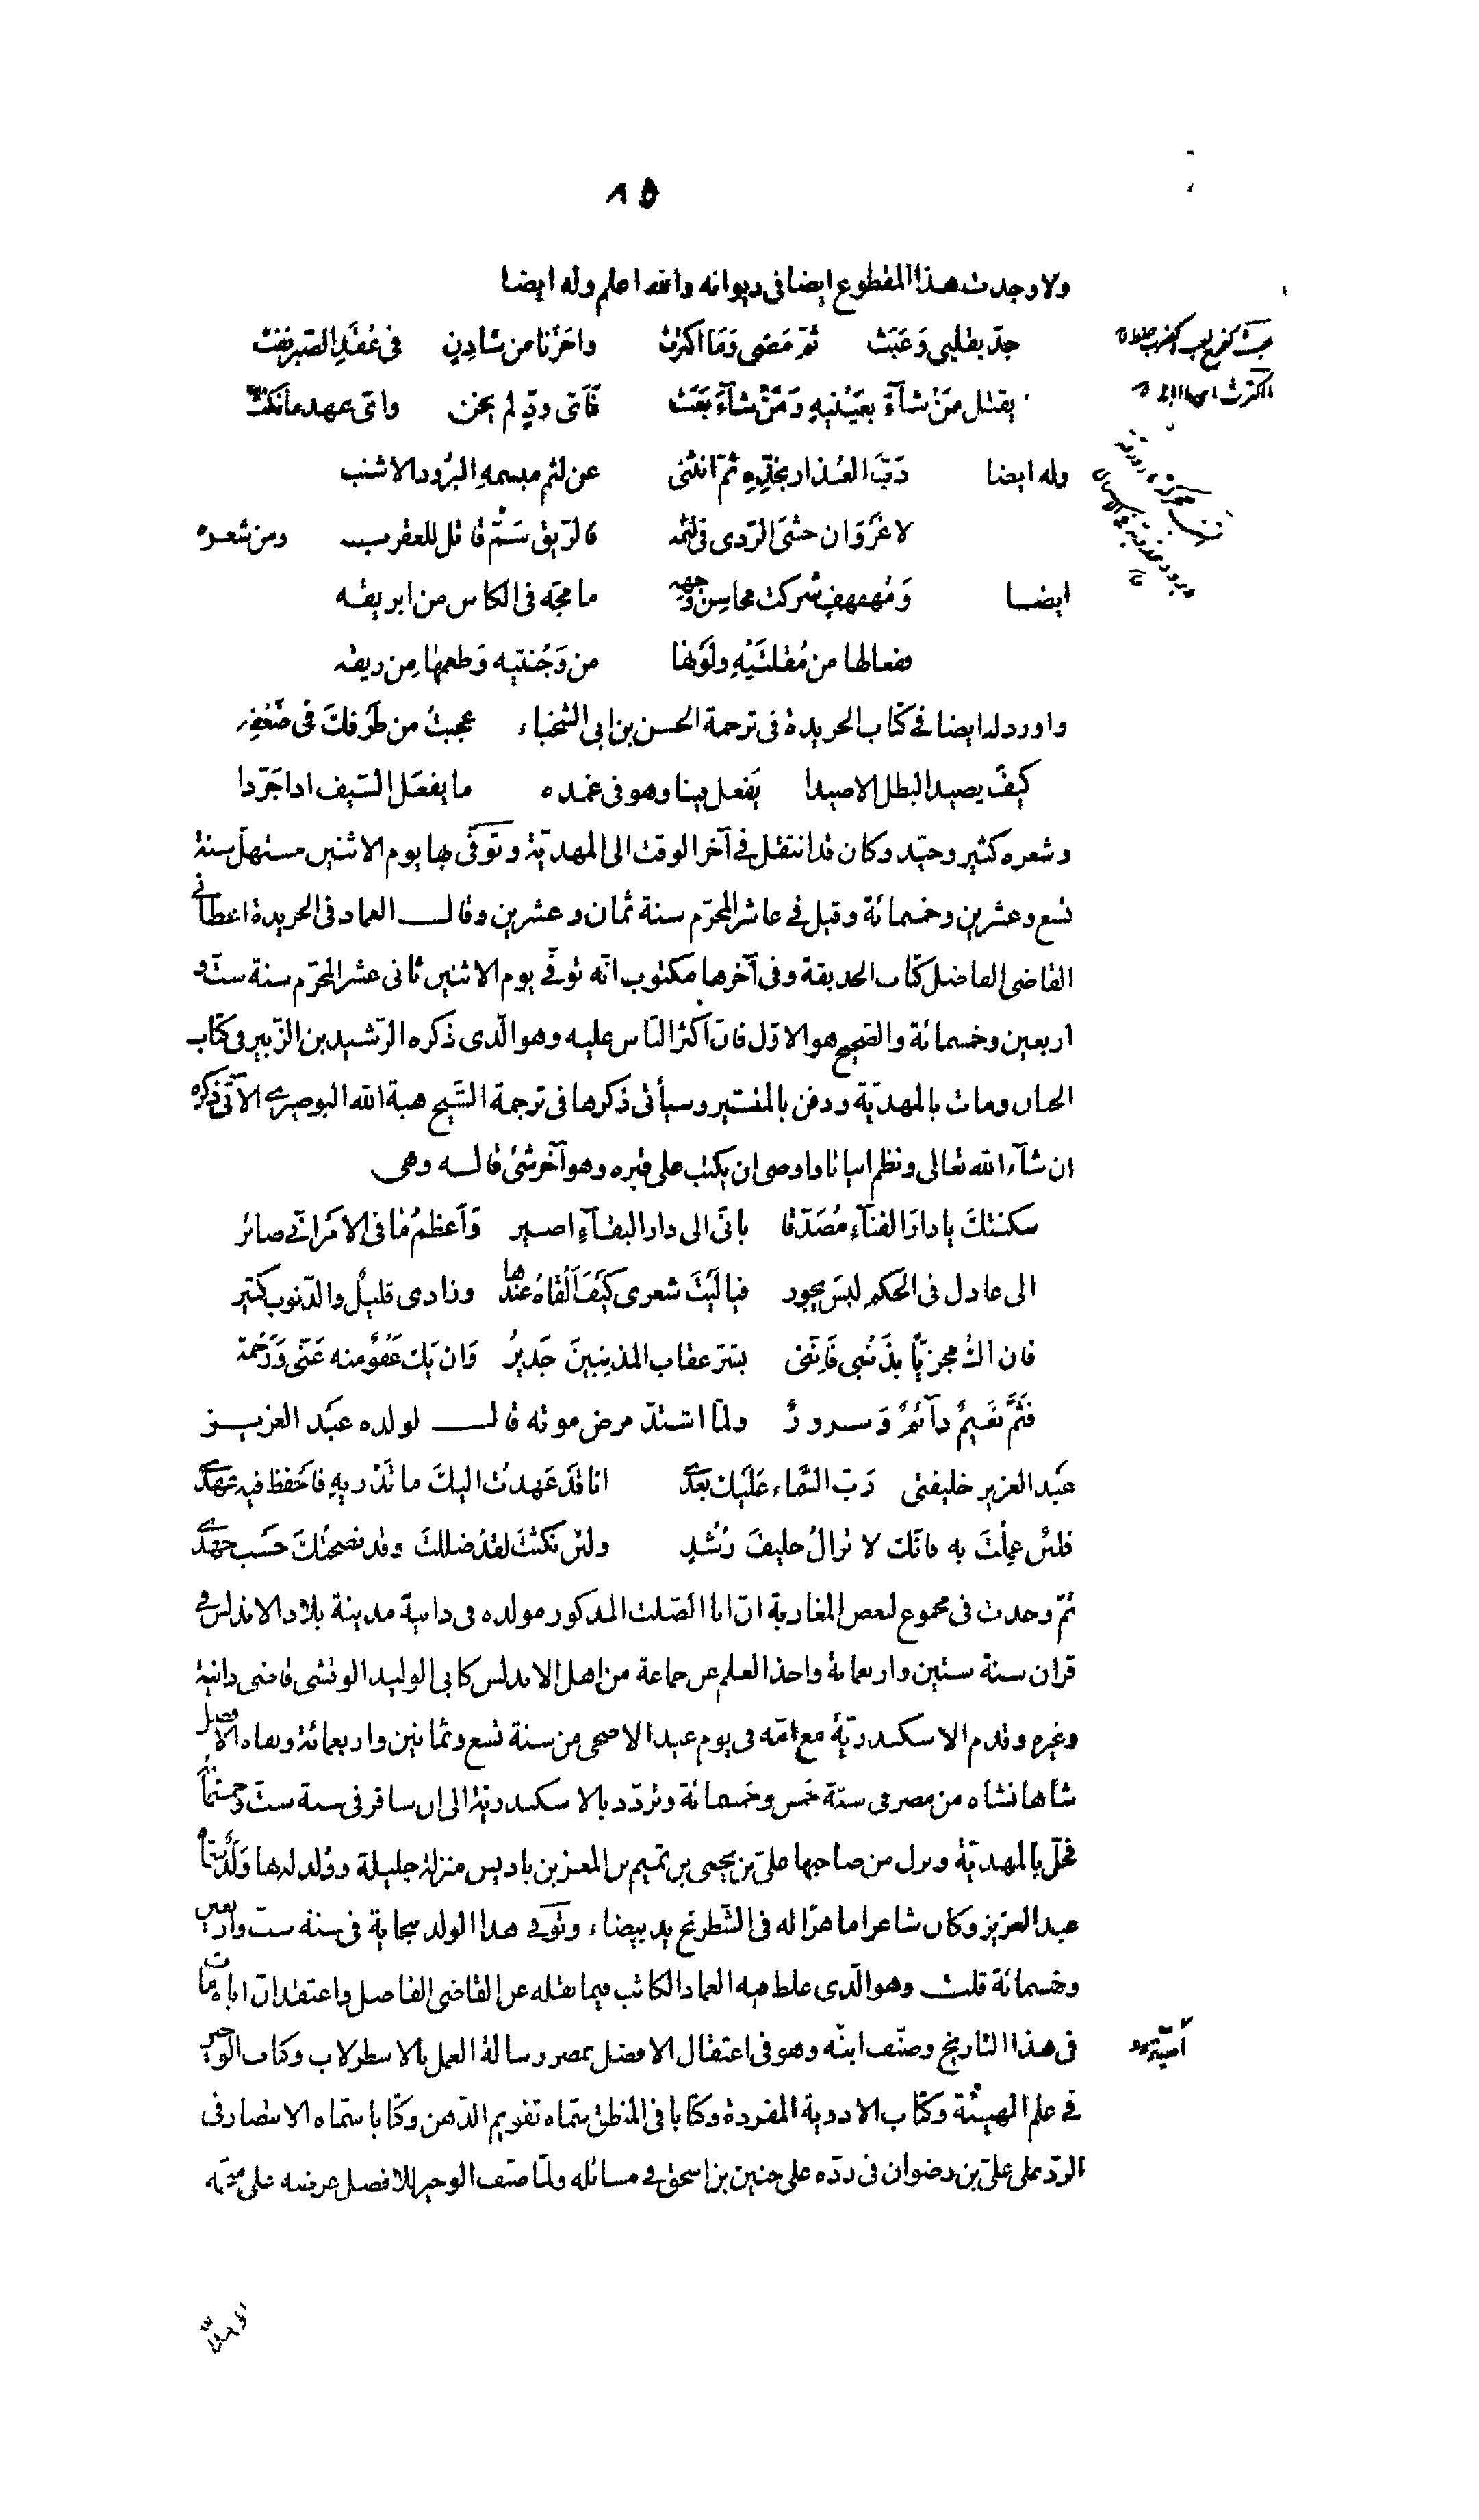 ٨٥
ولا وجدت هذا المقطوع ايضا فى ديوانه والله اعلم وله ايضا
جدّ بقلبى وَعَبَث ثمّ مَضى وَمَا اكترث واحَرَبا من شادِنٍ فى عُقَدِ الصّبر نفث
يقتل مَنْ شآءَ بعَيْنيهِ وَمَنْ شآءَ بَعَث فَاَىّ ودٍّ لم يخن واىّ عهد ما نَكث
وله ايضا دَبَّ العُذار بخدّهِ ثمّ انثنى عن لثم مبسمهِ البرُود الاشنب
لا غَرْوَ ان خشى الرّدى فى لثمه فالرّيق سَمّ قاتل للعقرب ومن شعره
ايضا وَمُهفهفٍ شركت محاسن وجهه ما مجّه فى الكاس من ابريقه
ففعالها من مُقلتَيْهِ ولَوْنها من وَجْنتيه وَطعمها من ريقه
واورد له ايضا فى كتاب الخريدة فى ترجمة الحسن بن ابى الشخباء عجبتُ من طَرْفكَ فى ضَعْفِهِ
كيفَ يصيد البطل الاصيدا يَفعل فينا وهو فى غمده ما يفعَل السّيف اذا جَرّدا
وشعره كثير وجيّد وكان قد انتقل فى آخر الوقت الى المهديّة وتوَفّى بها يوم الاثنين مستهلّ سنة
تسع وعشرين وخمسمائة وقيل فى عاشر المحرّم سنة ثمان وعشرين وقال العماد فى الخريدة اعطانى
القاضى الفاضل كتاب الحديقة وفى آخرها مكتوب انّه توفّى يوم الاثنين ثانى عشر المحرّم سنة ستّ و
اربعين وخمسمائة والصّحيح هو الاوّل فانّ اكثر النّاس عليه وهو الّذى ذكره الرّشيد بن الزّبير فى كتاب
الجنان ومات بالمهديّة ودفن بالمنستير وسيأتى ذكرها فى ترجمة الشّيخ هبة الله البوصيرى الآتى ذكره
ان شآء الله تعالى ونظم ابياتا واوصى ان يكتب على قبره وهو آخر شئ قاله وهى
سكنتكَ يا دارَ الفنآءِ مُصَدّقا بانّى الى دار البقآءِ اصير وَاَعظمُ ما فى الامَر انّى صائر
الى عادل فى الحكم ليسَ يجور فيا لَيْتَ شعرى كَيْفَ اَلْقاهُ عندها وزادى قليلٌ والذّنوب كثير
فان اكُ مجزيّا بذَنْبى فاِنّنى بشرّ عقاب المذنبينَ جَديرُ وَان يَك عَفوٌ منه عَنّى وَرَحْمة
فثَمَّ نَعَيمٌ دآئمٌ وَسرورُ ولمّا اشتدّ مرض موته قال لولده عبد العزيز
عبد العزيز خليفتى رَبّ السّماء عَلَيك بعدى انا قَد عَهدتُ اليكَ ما تَدْريهِ فاحفظ فيه عهدى
فلئن عملْتَ به فانّك لا تزالُ حليفَ رُشْدٍ ولئن نكثتَ لقد ضللتَ وقد نصحتُكَ حَسَب جهدى
ثمّ وجدت فى مجموع لبعض المغاربة انّ ابا الصّلت المذكور مولده فى دانية مدينة بلاد الاندلس فى
قران سنة ستين واربعمائة واخذ العلم عن جماعة من اهل الاندلس كابى الوليد الوقشى قاضى دانية
وغيره وقدم الاسكندريّة مع امّه فى يوم عيد الاضحى من سنة تسع وثمانين واربعمائة ونفاه الافضل
شاهانشاه من مصر فى سنة خمس وخمسمائة وتردّد بالاسكندريّة الى ان سافر فى سنة ستّ وخمسمأ
فحلّ بالمهديّة ونزل من صاحبها علىّ بن يحيى بن تميم بن المعز بن باديس منزلة جليلة وولد له بها وَلَد سمّاه
عبد العزيز وكان شاعرا ماهرًا له فى الشّطرنج يد بيضاء وتوَفّى هذا الولد ببجاية فى سنة ستّ واربعين
وخمسمائة قلت وهو الّذى غلط فيه العماد الكاتب فيما نقله عن القاضى الفاضل واعتقد انّ اباه مات
فى هذا التاريخ وصنّف اميّه وهو فى اعتقال الافضل بمصر رسالة العمل بالاسطرلاب وكتاب الوجيز
فى علم الهيئة وكتاب الادوية المفردة وكتابا فى المنطق سمّاه تقويم الذّهن وكتابا سمّاه الانتصار فى
الردّ على علىّ بن رضوان فى ردّه على حنين بن اسحق فى مسائله ولمّا صنّف الوجيز للافضل عرضه على منجّمه